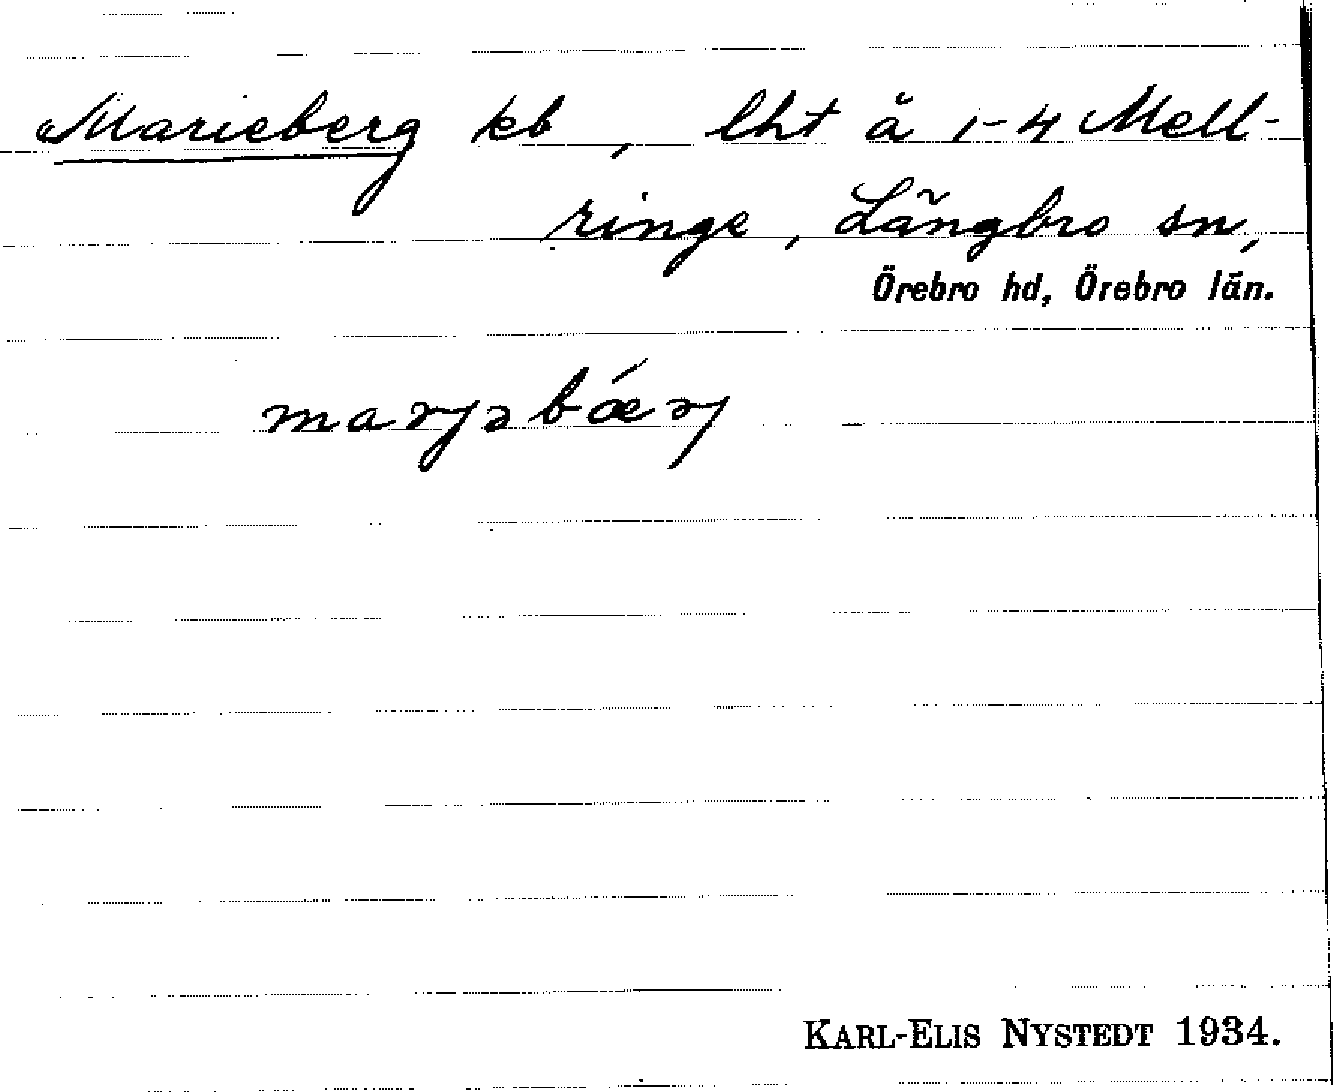 Marieberg kb, lht å 1-4 Mell-
ringe, Långbro sn,
Örebro hd, Örebro län.
marjəbǽrj
KARL-ELIS NYSTEDT 1934.